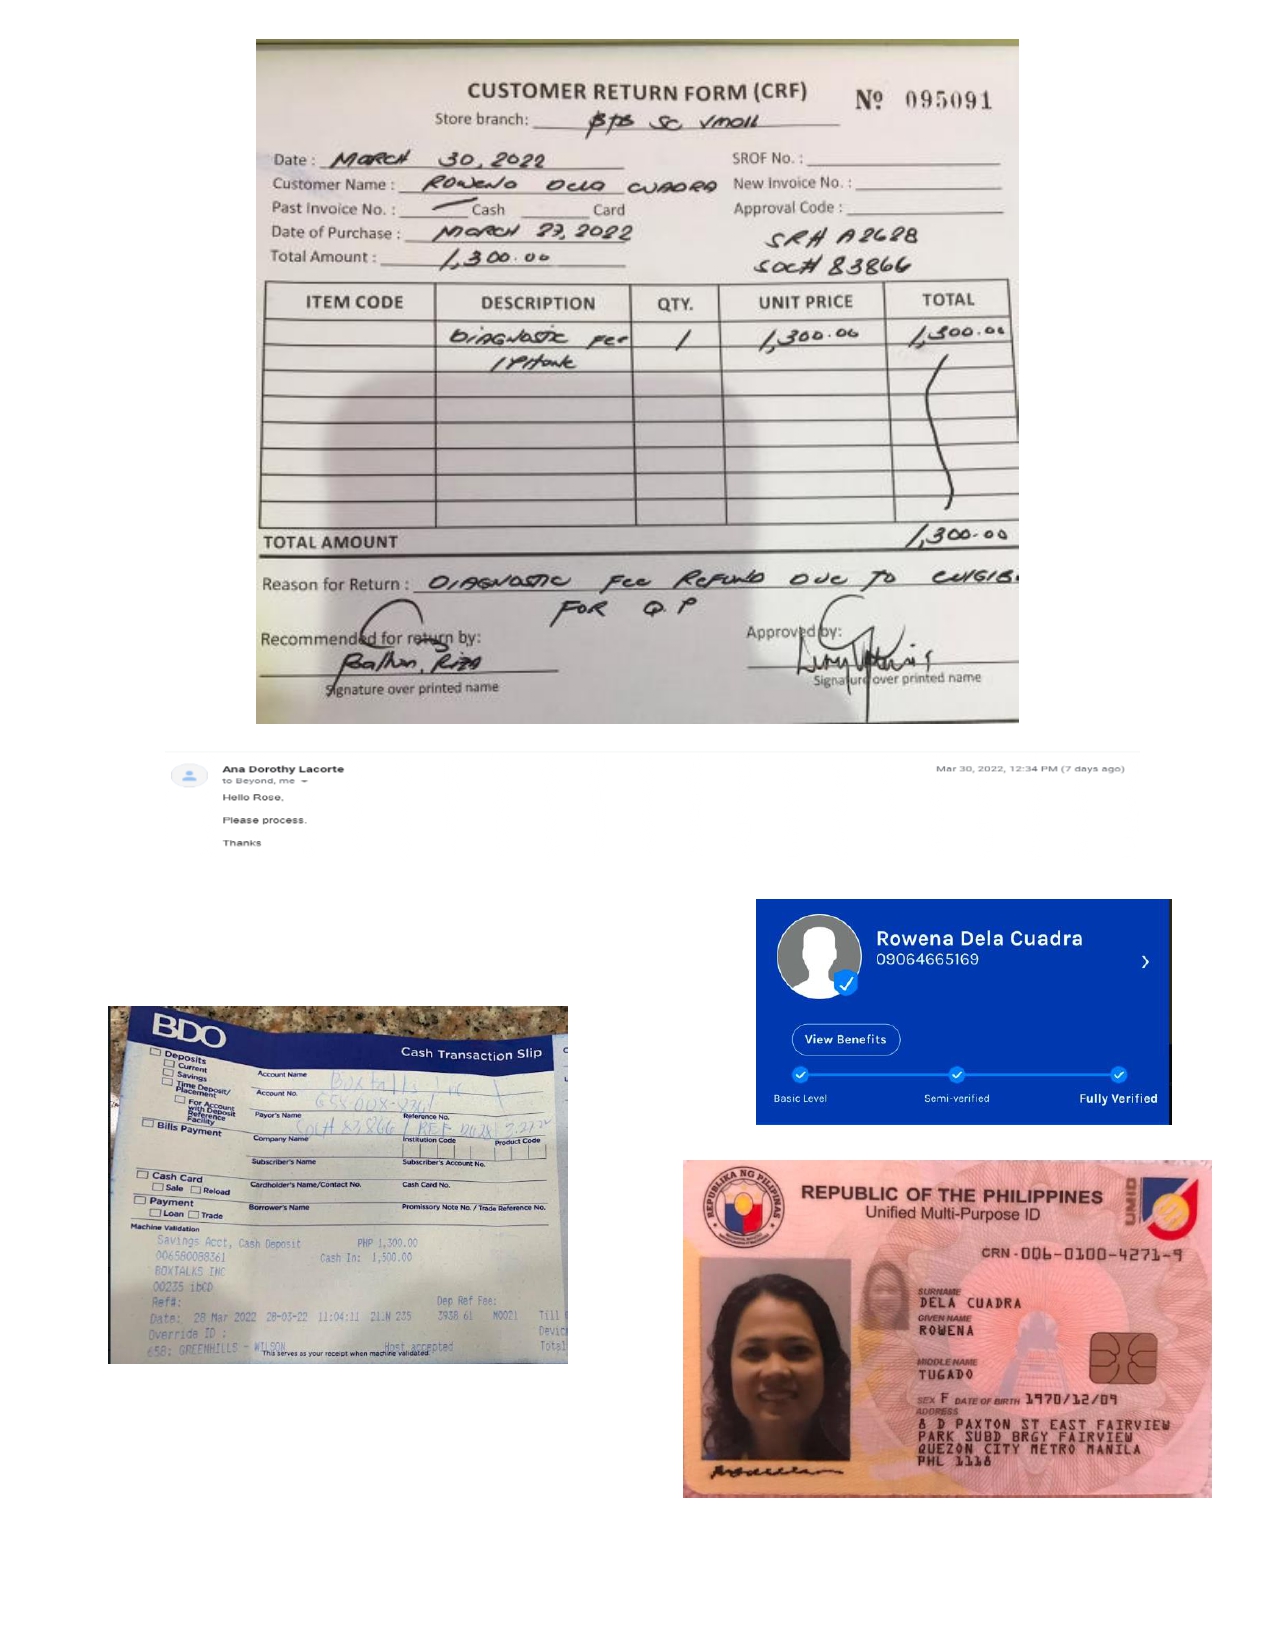 CUSTOMER RETURN FORM (CRF)
Nº 095091
Store branch: BPB SC VMALL
Date : MARCH 30, 2022
SROF No. :
Customer Name : ROWENA DELA CUADRA
New Invoice No. :
Past Invoice No. : Cash Card
Approval Code :
Date of Purchase : MARCH 27, 2022
SR# A2628
Total Amount : 1,300.00
SOC# 83866
ITEM CODE DESCRIPTION QTY. UNIT PRICE TOTAL
DIAGNOSTIC FEE 1 1,300.00 1,300.00
IPHONE
TOTAL AMOUNT 1,300.00
Reason for Return : DIAGNOSTIC FEE REFUND DUE TO ELIGIB
FOR Q.P
Recommended for return by:
Approved by:
Signature over printed name
Signature over printed name
Ana Dorothy Lacorte
Mar 30, 2022, 12:34 PM (7 days ago)
to Beyond, me
Hello Rose,
Please process.
Thanks
Rowena Dela Cuadra
09064665169
View Benefits
Basic Level Semi-verified Fully Verified
BDO
Cash Transaction Slip
Deposits
Current
Savings
Time Deposit/
Placement
For Account
with Deposit
Reference
Facility
Bills Payment
Cash Card
Sale Reload
Payment
Loan Trade
Account Name Boxtalks Inc
Account No.
Payor's Name Reference No.
SOC# 83866 / REF
Company Name Institution Code Product Code
Subscriber's Name Subscriber's Account No.
Cardholder's Name/Contact No. Cash Card No.
Borrower's Name Promissory Note No. / Trade Reference No.
Machine Validation
Savings Acct, Cash Deposit PHP 1,300.00
006580088361 Cash In: 1,500.00
BOXTALKS INC
00235 ibCD
Ref#: Dep Ref Fee:
Date: 28 Mar 2022 28-03-22 11:04:11 21.N 235 3938 61 M0021 Till
Override ID : Devic
658: GREENHILLS - WILSON Host accepted Total
This serves as your receipt when machine validated.
REPUBLIKA NG PILIPINAS
REPUBLIC OF THE PHILIPPINES
Unified Multi-Purpose ID
UMID
CRN - 006-0100-4271-9
SURNAME
DELA CUADRA
GIVEN NAME
ROWENA
MIDDLE NAME
TUGADO
SEX F DATE OF BIRTH 1970/12/09
ADDRESS
8 D PAXTON ST EAST FAIRVIEW
PARK SUBD BRGY FAIRVIEW
QUEZON CITY METRO MANILA
PHL 1118